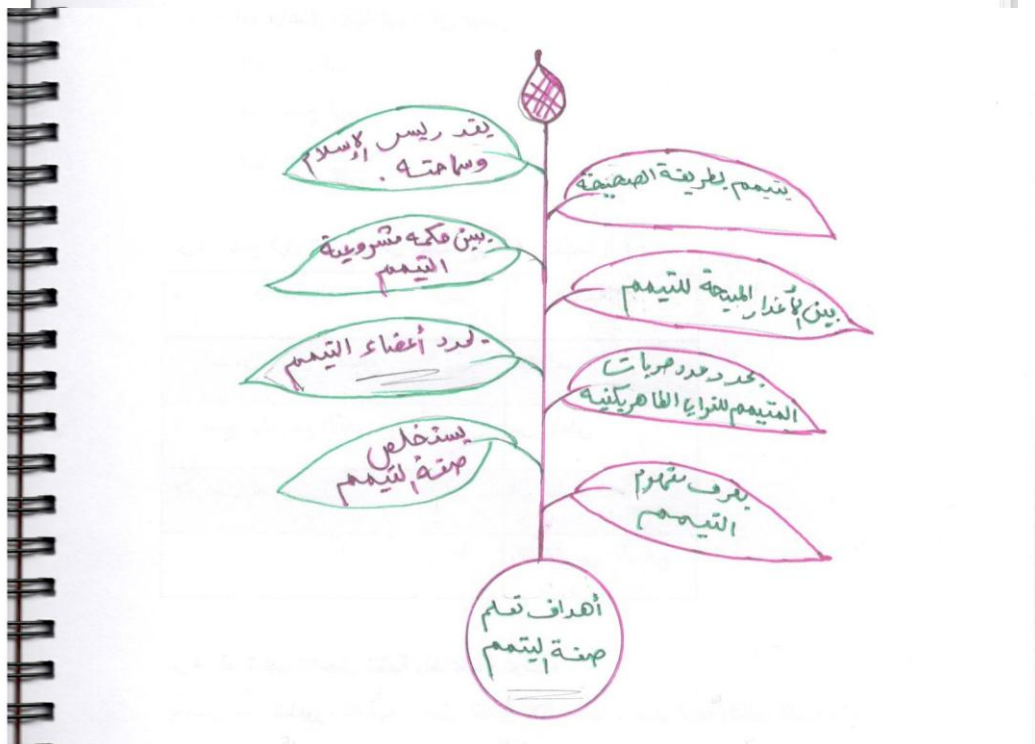 يقدر يسر الإسلام
وسماحته .
يتيمم بطريقة الصحيحة
يبين حكمه مشروعية
التيمم
يبين الأعذار المبيحة للتيمم
يحدد أعضاء التيمم
يحدد عدد ضربات
المتيمم للتراب الطاهر بكفيه
يستخلص
صفة التيمم
يعرف مفهوم
التيمم
أهداف تعلم
صفة التيمم